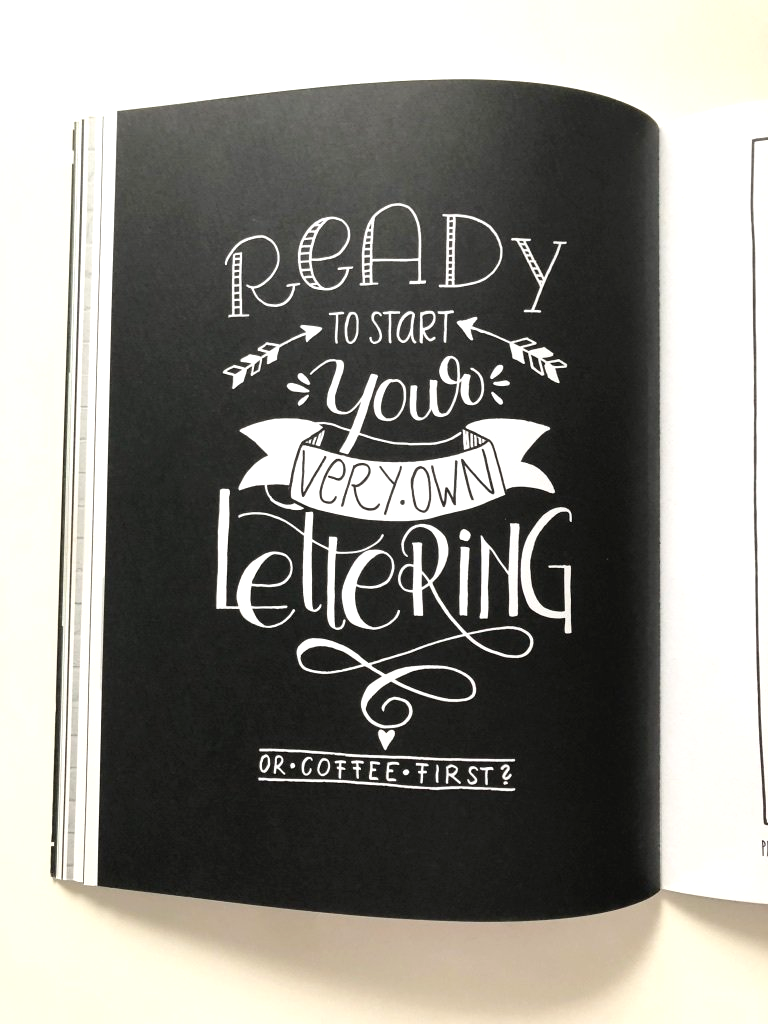 READY
TO START
your
VERY.OWN
LetteRiNG
OR•COFFEE•FIRST?